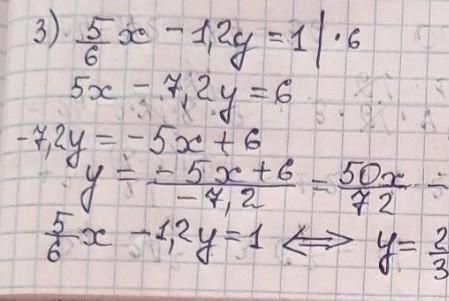 3) 5/6 x - 1,2y = 1 | · 6
5x - 7,2y = 6
-7,2y = -5x + 6
y = (-5x + 6)/(-7,2) = 50x/72 -
5/6 x - 1,2y = 1 ⟺ y = 2/3